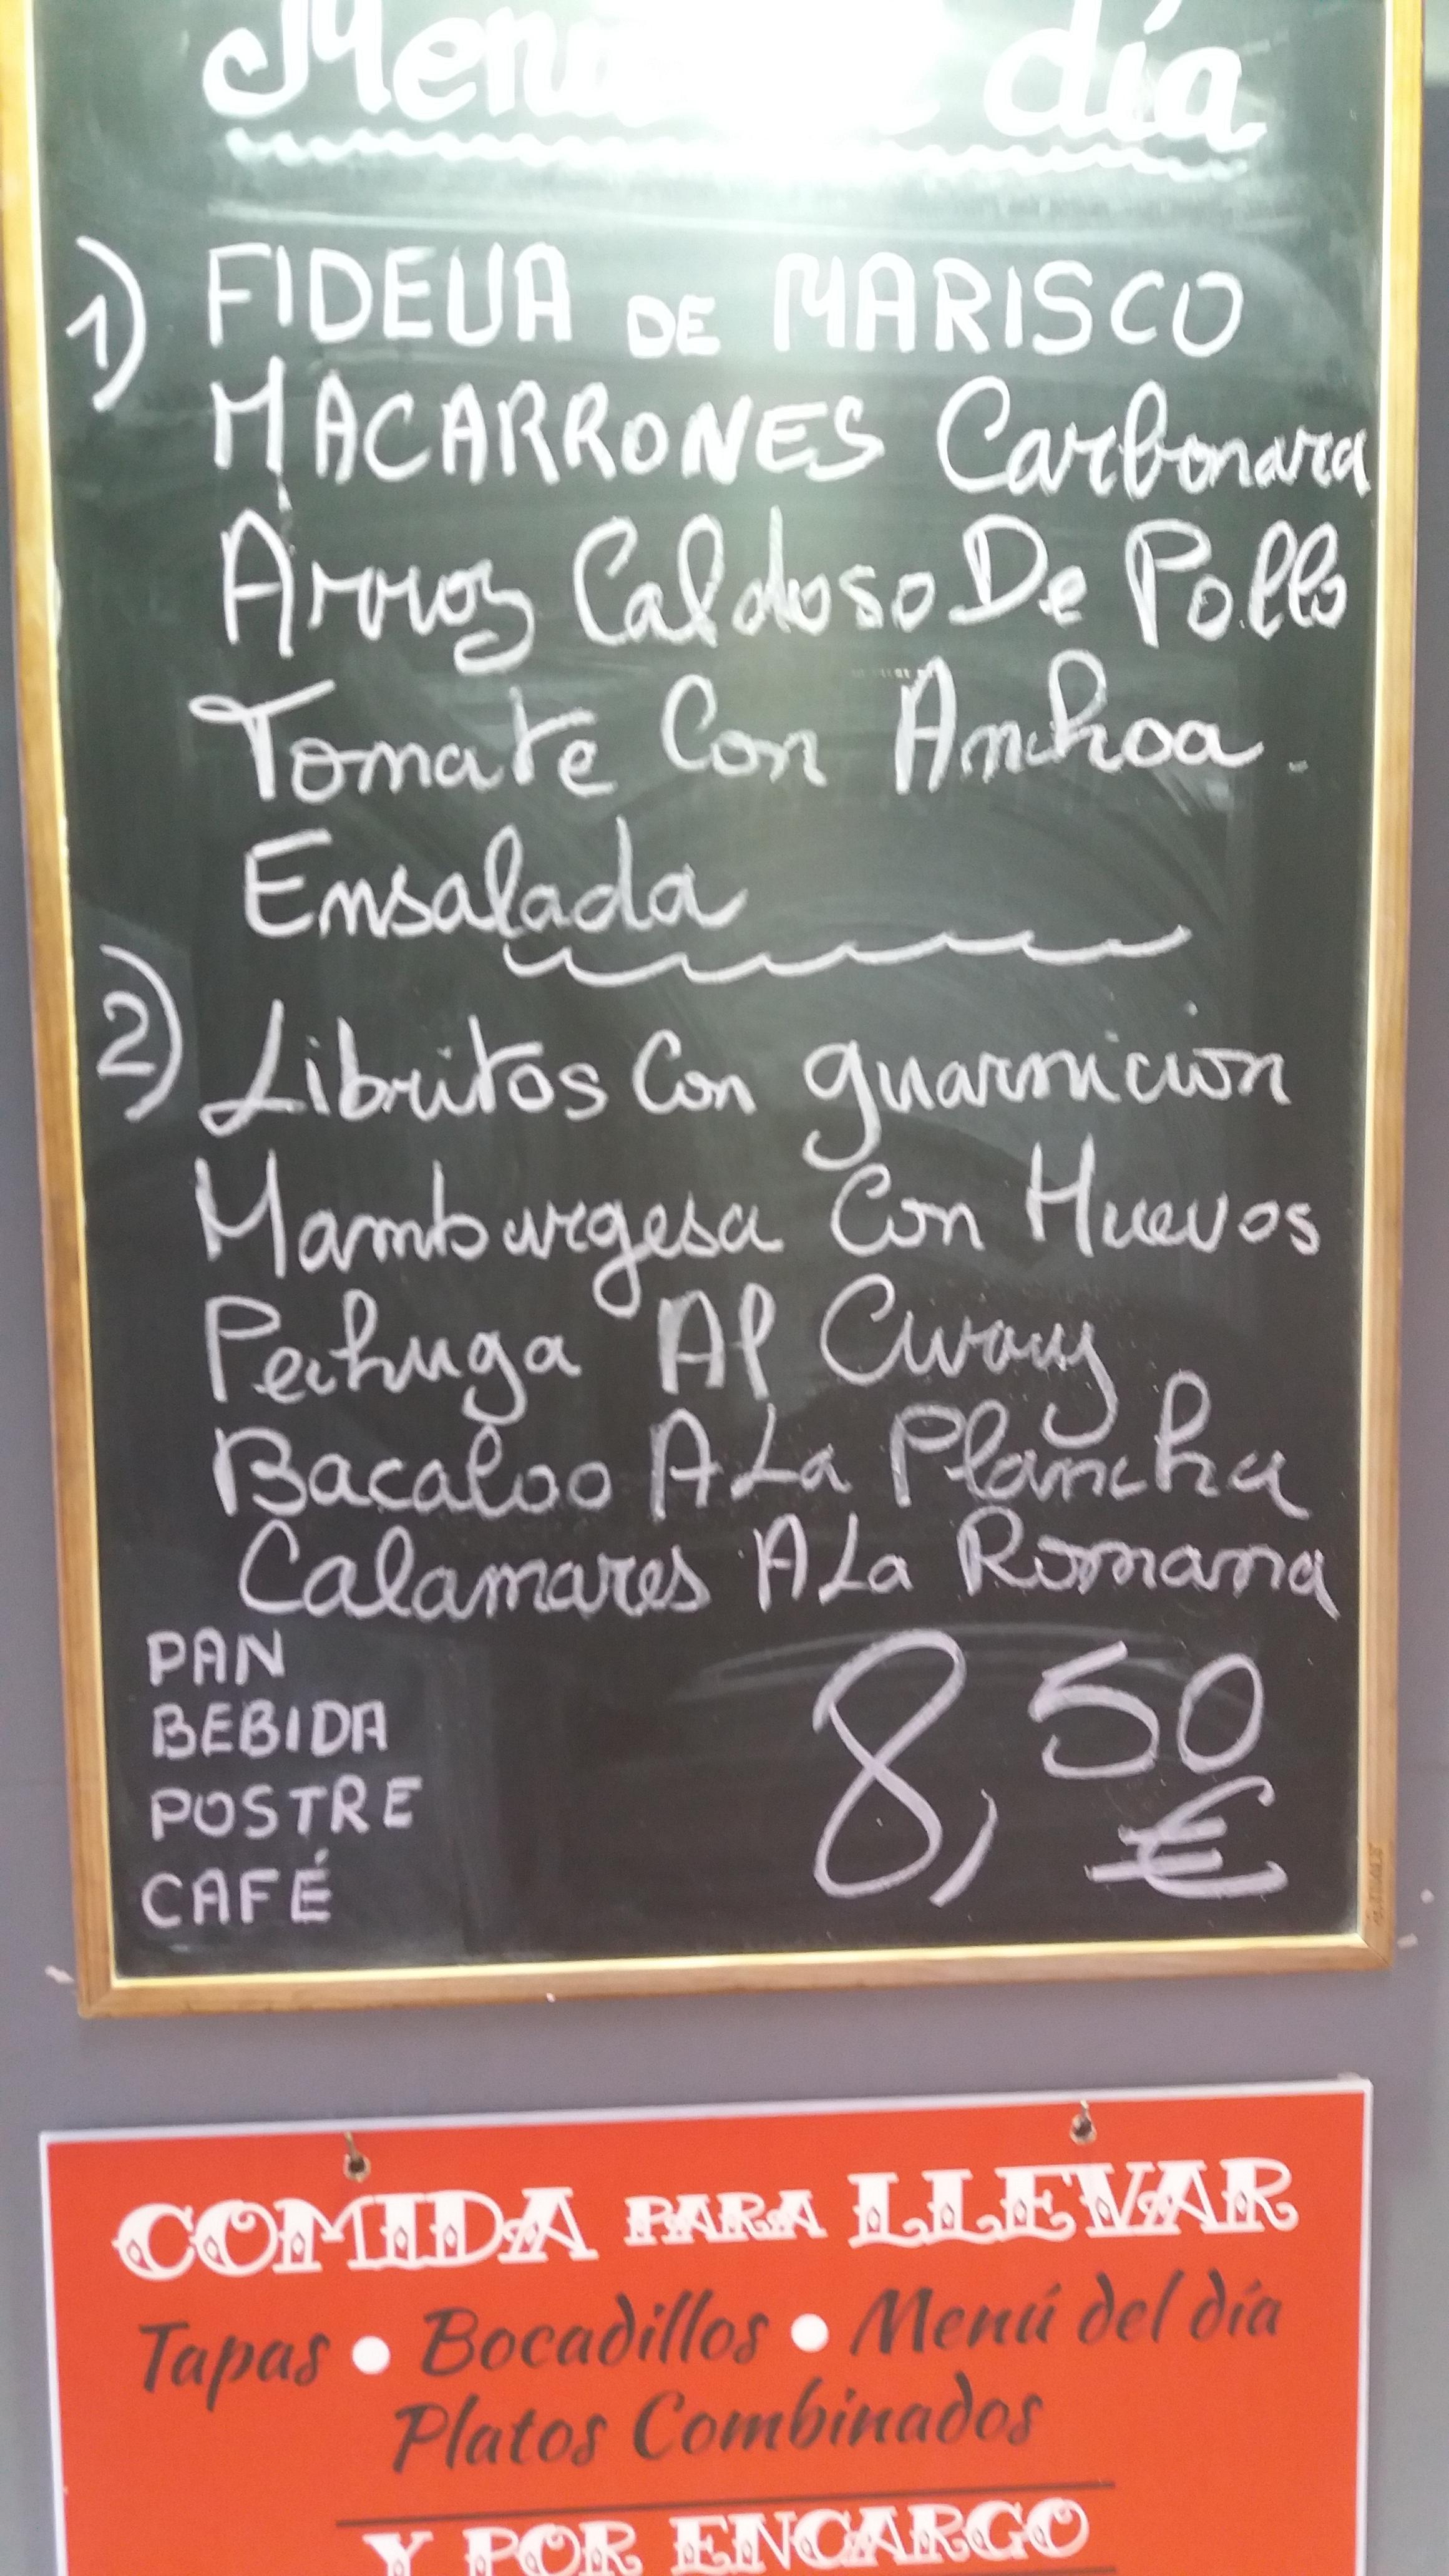 Menú del día
1) FIDEUA DE MARISCO
MACARRONES Carbonara
Arroz Caldoso De Pollo
Tomate Con Anchoa
Ensalada
2) Libritos Con guarnicion
Hamburgesa Con Huevos
Pechuga Al Curouy
Bacalao A La Plancha
Calamares A La Romana
PAN
BEBIDA
POSTRE
CAFÉ
8,50 €
COMIDA PARA LLEVAR
Tapas • Bocadillos • Menú del día
Platos Combinados
Y POR ENCARGO